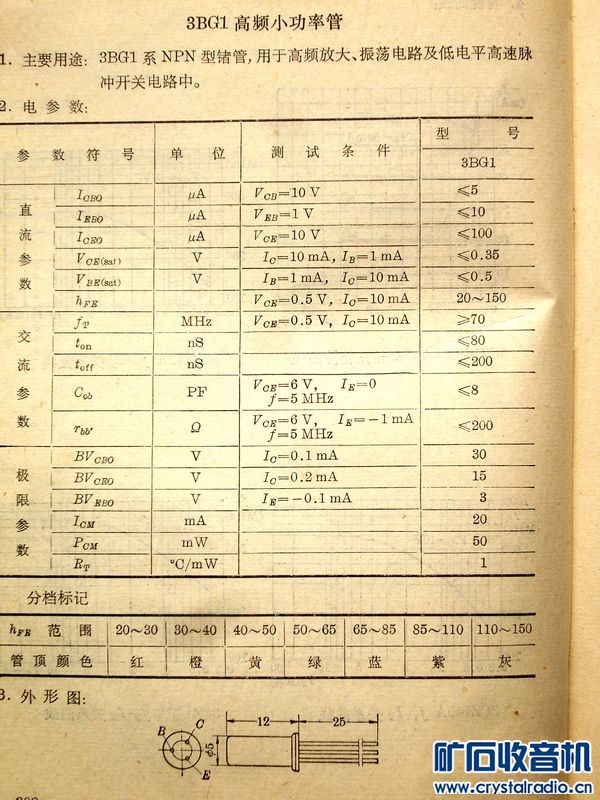 3BG1 高频小功率管
1. 主要用途: 3BG1 系 NPN 型锗管,用于高频放大、振荡电路及低电平高速脉
冲开关电路中。
2. 电参数:
参数符号 单位 测试条件 型号
3BG1
直流参数
I_CBO μA V_CB=10 V ≤5
I_EBO μA V_EB=1 V ≤10
I_CEO μA V_CE=10 V ≤100
V_CE(sat) V I_C=10 mA, I_B=1 mA ≤0.35
V_BE(sat) V I_B=1 mA, I_C=10 mA ≤0.5
h_FE V_CE=0.5 V, I_C=10 mA 20~150
交流参数
f_T MHz V_CE=0.5 V, I_C=10 mA ≥70
t_on nS ≤80
t_off nS ≤200
C_ob PF V_CE=6 V, I_E=0
f=5 MHz ≤8
r_bb′ Ω V_CE=6 V, I_E=-1 mA
f=5 MHz ≤200
极限参数
BV_CBO V I_C=0.1 mA 30
BV_CEO V I_C=0.2 mA 15
BV_EBO V I_E=-0.1 mA 3
I_CM mA 20
P_CM mW 50
R_T °C/mW 1
分档标记
h_FE 范围 20~30 30~40 40~50 50~65 65~85 85~110 110~150
管顶颜色 红 橙 黄 绿 蓝 紫 灰
3. 外形图:
12 25
B C
E
φ5
矿石收音机
www.crystalradio.cn